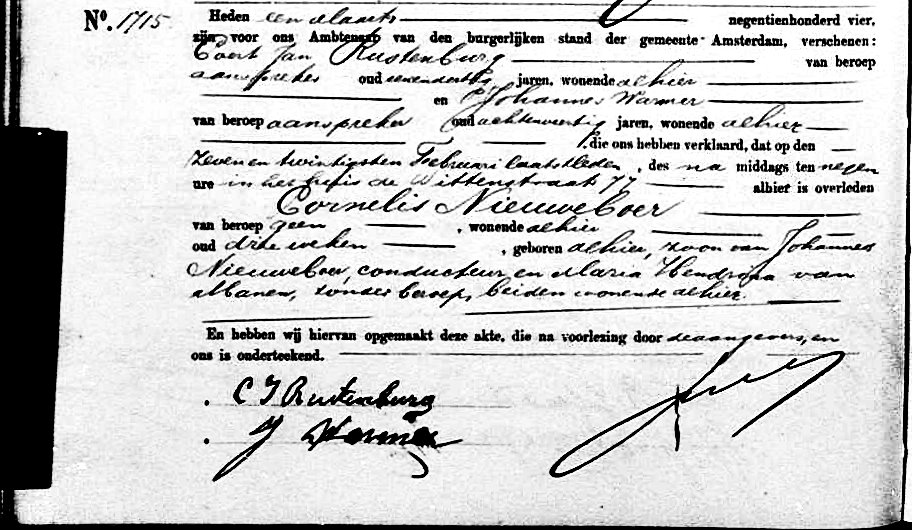 Nº. 1715
Heden een Maart negentienhonderd vier,
zijn voor ons Ambtenaar van den burgerlijken stand der gemeente Amsterdam, verschenen:
Evert Jan Rustenburg van beroep
aanspreker oud jaren, wonende alhier
en Johannes Warmer
van beroep aanspreker oud achtenveertig jaren, wonende alhier
, die ons hebben verklaard, dat op den
zeven en twintigsten Februari laatstleden, des na middags ten negen
ure in het huis de Wittenstraat 77 alhier is overleden
Cornelis Nieuweboer
van beroep geen, wonende alhier
oud drie weken, geboren alhier, zoon van Johannes
Nieuweboer, conducteur, en Maria Hendrona van
Manen, zonder beroep, beiden wonende alhier.
En hebben wij hiervan opgemaakt deze akte, die na voorlezing door de aangevers, en
ons is onderteekend.
. C J Rustenburg
. J Warmer